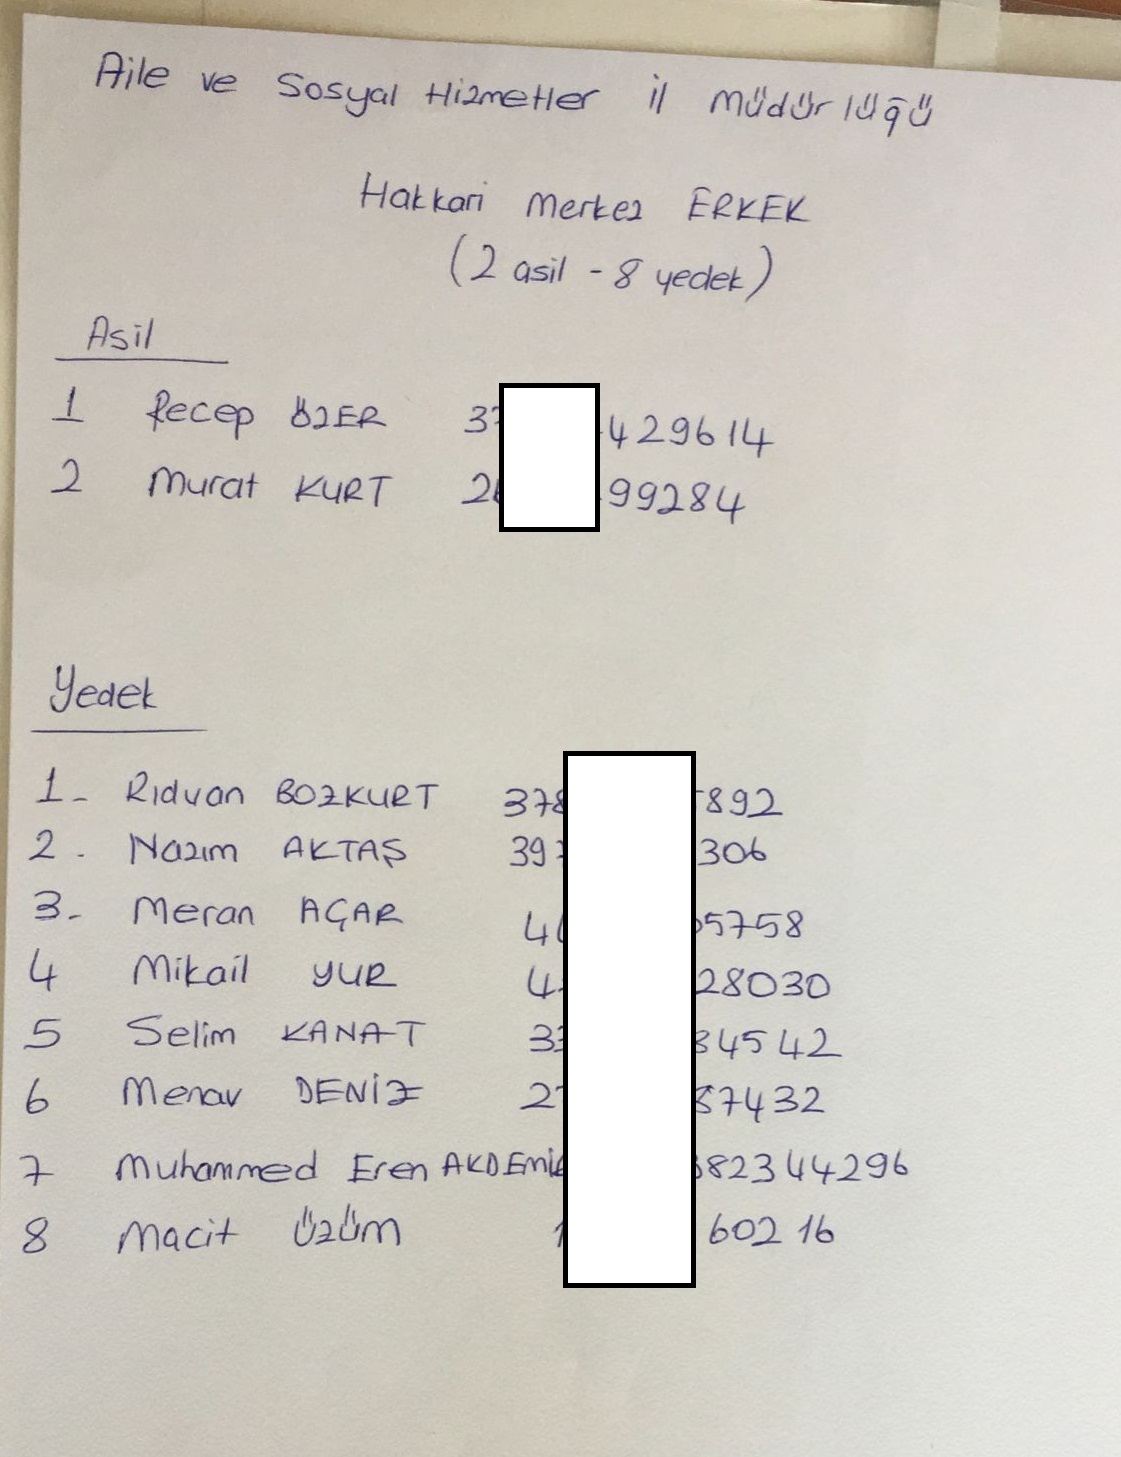 Aile ve Sosyal Hizmetler il müdürlüğü
Hakkari Merkez ERKEK
(2 asil - 8 yedek)
Asil
1 Recep ÖZER 37 429614
2 Murat KURT 26 99284
Yedek
1- Rıdvan BOZKURT 378 892
2. Nazım AKTAŞ 39 306
3- Meran AÇAR 4 5758
4 Mikail YUR 4 28030
5 Selim KANAT 33 84542
6 Menav DENİZ 2 87432
7 Muhammed Eren AKDEMİR 82344296
8 Macit ÜZÜM 1 60216